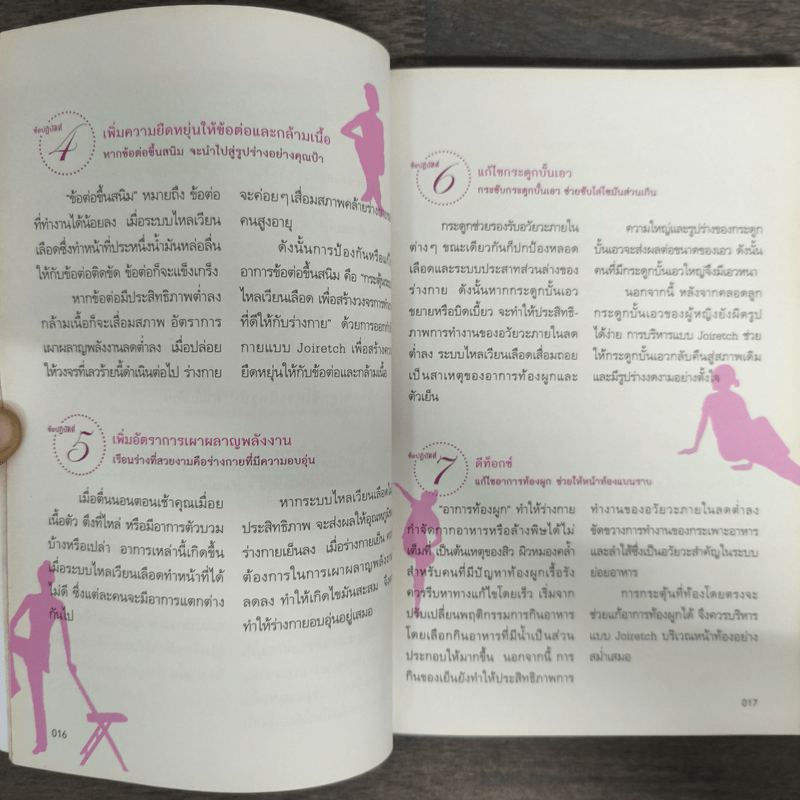 ข้อปฏิบัติที่
4
เพิ่มความยืดหยุ่นให้ข้อต่อและกล้ามเนื้อ
หากข้อต่อขึ้นสนิม จะนำไปสู่รูปร่างอย่างคุณป้า
"ข้อต่อขึ้นสนิม" หมายถึง ข้อต่อ
ที่ทำงานได้น้อยลง เมื่อระบบไหลเวียน
เลือดซึ่งทำหน้าที่ประหนึ่งน้ำมันหล่อลื่น
ให้กับข้อต่อติดขัด ข้อต่อก็จะแข็งเกร็ง
หากข้อต่อมีประสิทธิภาพต่ำลง
กล้ามเนื้อก็จะเสื่อมสภาพ อัตราการ
เผาผลาญพลังงานลดต่ำลง เมื่อปล่อย
ให้วงจรที่เลวร้ายนี้ดำเนินต่อไป ร่างกาย
จะค่อยๆ เสื่อมสภาพคล้ายร่างกายของ
คนสูงอายุ
ดังนั้นการป้องกันหรือแก้
อาการข้อต่อขึ้นสนิม คือ "กระตุ้นระบบ
ไหลเวียนเลือด เพื่อสร้างวงจรการทำงาน
ที่ดีให้กับร่างกาย" ด้วยการออกกำลัง
กายแบบ Joiretch เพื่อสร้างความ
ยืดหยุ่นให้กับข้อต่อและกล้ามเนื้อ
ข้อปฏิบัติที่
5
เพิ่มอัตราการเผาผลาญพลังงาน
เรือนร่างที่สวยงามคือร่างกายที่มีความอบอุ่น
เมื่อตื่นนอนตอนเช้าคุณเมื่อย
เนื้อตัว ตึงที่ไหล่ หรือมีอาการตัวบวม
บ้างหรือเปล่า อาการเหล่านี้เกิดขึ้น
เมื่อระบบไหลเวียนเลือดทำหน้าที่ได้
ไม่ดี ซึ่งแต่ละคนจะมีอาการแตกต่าง
กันไป
หากระบบไหลเวียนเลือดไม่มี
ประสิทธิภาพ จะส่งผลให้อุณหภูมิของ
ร่างกายเย็นลง เมื่อร่างกายเย็น ความ
ต้องการในการเผาผลาญพลังงาน
ลดลง ทำให้เกิดไขมันสะสม จึงควร
ทำให้ร่างกายอบอุ่นอยู่เสมอ
016
ข้อปฏิบัติที่
6
แก้ไขกระดูกบั้นเอว
กระชับกระดูกบั้นเอว ช่วยขับไล่ไขมันส่วนเกิน
กระดูกช่วยรองรับอวัยวะภายใน
ต่างๆ ขณะเดียวกันก็ปกป้องหลอด
เลือดและระบบประสาทส่วนล่างของ
ร่างกาย ดังนั้นหากกระดูกบั้นเอว
ขยายหรือบิดเบี้ยว จะทำให้ประสิทธิ-
ภาพการทำงานของอวัยวะภายในลด
ต่ำลง ระบบไหลเวียนเลือดเสื่อมถอย
เป็นสาเหตุของอาการท้องผูกและ
ตัวเย็น
ความใหญ่และรูปร่างของกระดูก
บั้นเอวจะส่งผลต่อขนาดของเอว ดังนั้น
คนที่มีกระดูกบั้นเอวใหญ่จึงมีเอวหนา
นอกจากนี้ หลังจากคลอดลูก
กระดูกบั้นเอวของผู้หญิงยังผิดรูป
ได้ง่าย การบริหารแบบ Joiretch ช่วย
ให้กระดูกบั้นเอวกลับคืนสู่สภาพเดิม
และมีรูปร่างงดงามอย่างตั้งใจ
ข้อปฏิบัติที่
7
ดีท็อกซ์
แก้ไขอาการท้องผูก ช่วยให้หน้าท้องแบนราบ
"อาการท้องผูก" ทำให้ร่างกาย
กำจัดกากอาหารหรือล้างพิษได้ไม่
เต็มที่ เป็นต้นเหตุของสิว ผิวหมองคล้ำ
สำหรับคนที่มีปัญหาท้องผูกเรื้อรัง
ควรรีบหาทางแก้ไขโดยเร็ว เริ่มจาก
ปรับเปลี่ยนพฤติกรรมการกินอาหาร
โดยเลือกกินอาหารที่มีน้ำเป็นส่วน
ประกอบให้มากขึ้น นอกจากนี้ การ
กินของเย็นยังทำให้ประสิทธิภาพการ
ทำงานของอวัยวะภายในลดต่ำลง
ขัดขวางการทำงานของกระเพาะอาหาร
และลำไส้ซึ่งเป็นอวัยวะสำคัญในระบบ
ย่อยอาหาร
การกระตุ้นที่ท้องโดยตรงจะ
ช่วยแก้อาการท้องผูกได้ จึงควรบริหาร
แบบ Joiretch บริเวณหน้าท้องอย่าง
สม่ำเสมอ
017